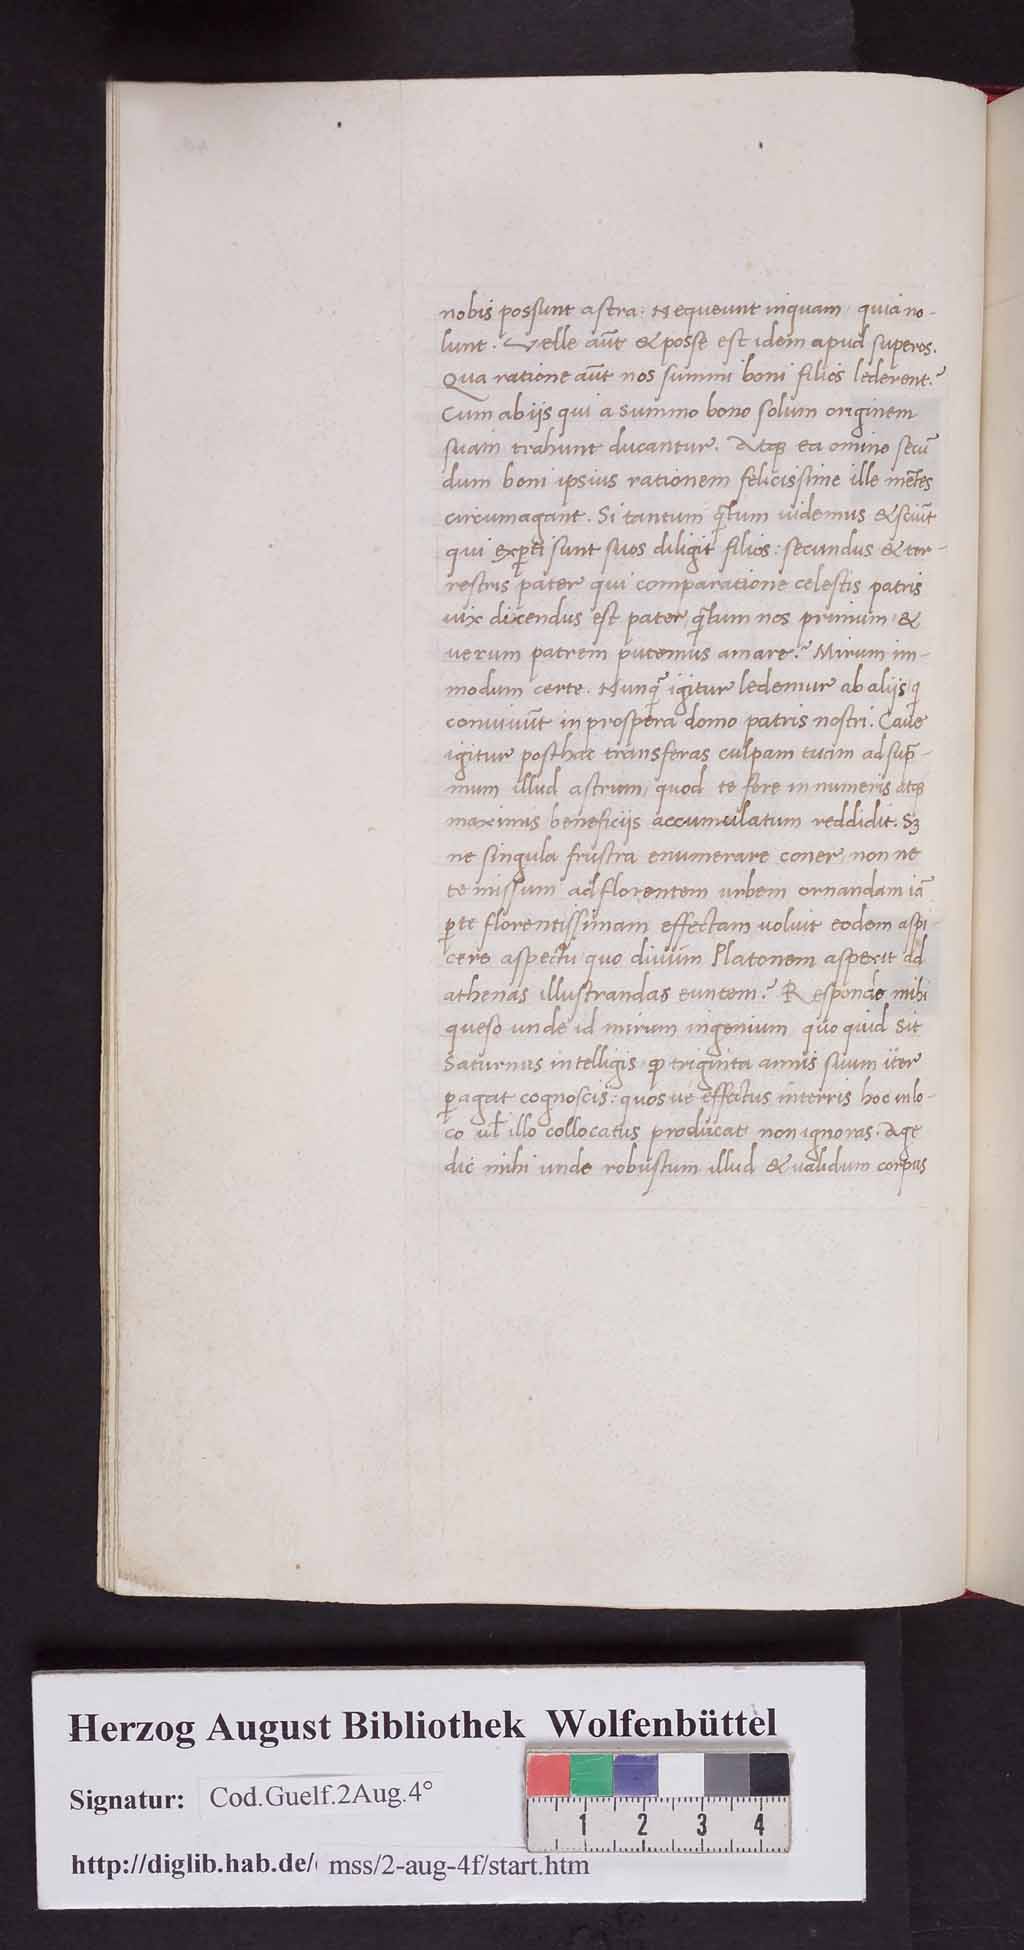 nobis possunt astra: Nequeunt inquam, quia no-
lunt. Velle aūt & posse est idem apud superos.
Qua ratione aūt nos summi boni filios lederent?
Cum ab ijs qui a summo bono solum originem
suam trahunt ducantur. Atqȝ ea omīno secū
dum boni ipsius rationem felicissime ille mētes
circumagant. Si tantum q̄tum uidemus & sciūt
qui exꝑti sunt suos diligit filios: secundus & ter-
restris pater qui comparatione celestis patris
uix dicendus est pater, q̄tum nos primum &
uerum patrem putemus amare? Mirum im-
modum certe. Nunq̄ igitur ledemur ab alijs q
conuiuūt in prospera domo patris nostri. Caue
igitur posthac transferas culpam tuam ad sup̄-
mum illud astrum, quod te fere innumeris atqȝ
maximis beneficijs accumulatum reddidit. Sȝ
ne singula frustra enumerare coner, non ne
te missum ad florentem urbem ornandam iā
ꝑ te florentissimam effectam uoluit eodem aspi-
cere aspectu quo diuūm Platonem aspexit ad
athenas illustrandas euntem? Responde mihi
queso unde id mirum ingenium quo quid sit
Saturnus intelligis, ꝙ triginta annis suum iter
ꝑagat cognoscis: quos ue effectus in terris hoc in lo-
co ul̄ illo collocatus producat non ignoras. Age
dic mihi unde robustum illud & ualidum corpus
Herzog August Bibliothek Wolfenbüttel
Signatur: Cod.Guelf.2Aug.4°
http://diglib.hab.de/ mss/2-aug-4f/start.htm
1 2 3 4